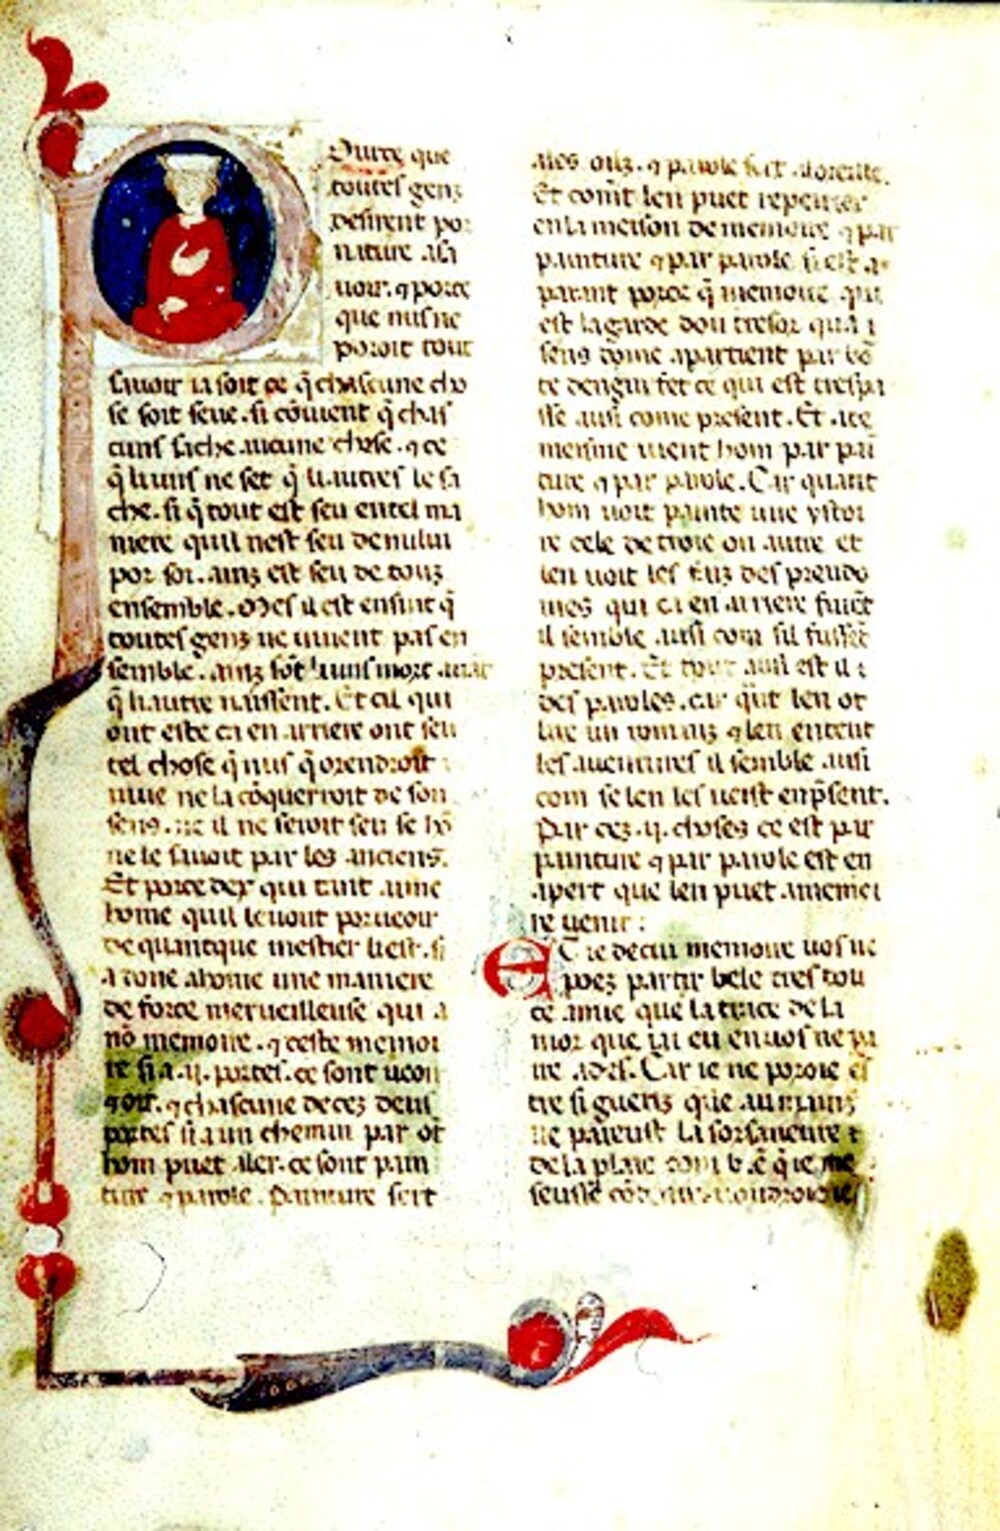 Puure que
toutes genz
desirent por
nature a sa
uoir. ⁊ porce
que nus ne
poroit tout
sauoir ia soit ce q̃ chascune cho
se soit seue. si cõuient q̃ chas
cuns sache aucune chose. ⁊ ce
q̃ li uns ne set q̃ li autres le sa
che. si q̃ tout est seu en tel ma
niere quil nest seu de nului
por soi. ainz est seu de touz
ensemble. Mes il est ensint q̃
toutes genz ne uiuent pas en
semble. ainz sõt li uns mort auāt
q̃ li autre naissent. Et cil qui
ont este ca en arriere ont seu
tel chose q̃ nus q̃ orendroit
uiue ne la cõquerroit de son
sens. ne il ne seroit seu se lõ
ne le sauoit par les anciens.
Et porce dex qui tant aime
home quil le uout porueoir
de quantque mestier li est. si
a done a home une maniere
de force merueilleuse qui a
nõ memoire. ⁊ ceste memoi
re si a .ij. portes. ce sont ueoir
⁊ oir. ⁊ chascune de cez deus
portes si a un chemin par ou
hom puet aler. ce sont pain
ture ⁊ parole. Painture sert
as oilz. ⁊ parole sert a loreille.
Et com̃t len puet repeirier
en la meison de memoire ⁊ par
painture ⁊ par parole si est a
parant porce q̃ memoire qui
est la garde dou tresor qua i
sens dome apartient par bõ
te dengin fet ce qui est trespa
sse ausi come present. Et a ce
meisme uient hom par pai
ture ⁊ par parole. Car quant
hom uoit painte une ystoi
re ou de troie ou autre et
len uoit les fez des preudo
mes qui ca en arriere furēt
il semble ausi com sil fussēt
present. Et tout ausi est il
des paroles. car q̃nt len ot
lire un romanz ⁊ len entent
les auentures il semble ausi
com se len les ueist en p̃sent.
Par cez .ij. choses ce est par
painture ⁊ par parole est en
apert que len puet a memoi
re uenir:
Et ie de cui memoire uos ne
poez partir bele tres dou
ce amie que la trace de la
mor que iai eu en uos ne pa
ire ades. Car ie ne poroie es
tre si gueriz que au mains
ne pareust la sorsaneure
de la plaie com b.ē q̃ ie me
seusse